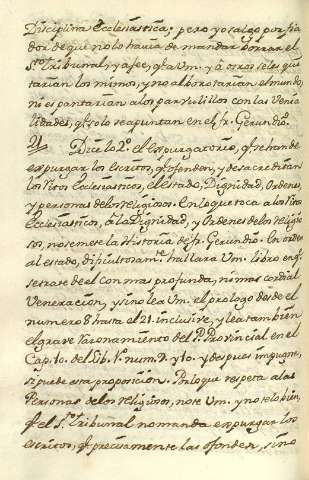 Disciplina Ecclesiastica; pero yo salgo por fia
dor de que no lo havia de mandar borrar el
Sto. Tribunal; y a fee, q. a Vm. y á otros se les qui
tarian los mimos, y no alborotarian el mundo,
ni espantarian a los parvulillos con las Venia
lidades, q. solo se apuntan en el fr. Gerundio.
Dice lo 2º. el Expurgatorio, q. se han de
expurgar los Escritos, q. ofenden, y desacreditan
los Ritos Ecclesiasticos, el estado, Dignidad, Ordenes,
y personas de los religiosos. En lo que toca a los Ritos
Ecclesiasticos, á la Dignidad, y Ordenes de los religio
sos, no se mete la Historia de fr. Gerundio. En orden
al estado, dificultosamte. hallara Vm. libro en q.
se trate de el con mas profunda, ni mas cordial
Veneracion, y sino lea Vm. el prologo desde el
numero 8 hasta el 21. inclusive, y lea tambien
el grave raronamiento del P. Provincial en el
Cap. 10. del lib. 1º. num. 9. y 10. y despues impugne,
si puede esta proposicion. Por lo que respeta a las
Personas de los religiosos, note Vm. y notelo bien,
q. el Sto. Tribunal no manda expurgar los
escritos, q. precisamente las ofenden, sino